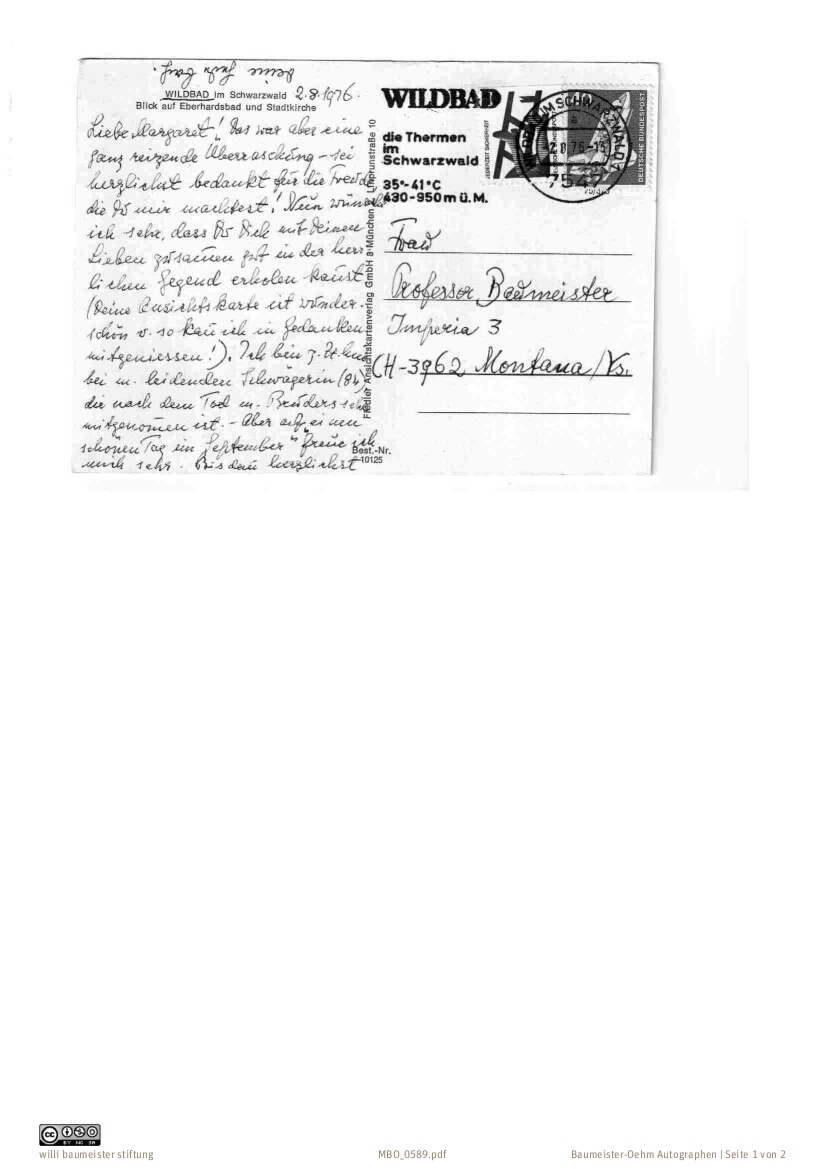 WILDBAD im Schwarzwald 2.8.1976.
Blick auf Eberhardsbad und Stadtkirche
Liebe Margaret! Das war aber eine
ganz reizende Überraschung – sei
herzlichst bedankt für die Freude,
die Du mir machtest! Nun wünsche
ich sehr, dass Du Dich mit Deinen
Lieben zusam̅en gut in der herr-
lichen Gegend erholen kan̅st
(Deine Ansichtskarte ist wunder-
schön u. so kan̅ ich in Gedanken
mitgeniessen!). Ich bin z. Zt. hier
bei m. leidenden Schwägerin (84),
die nach dem Tod m. Bruders sehr
mitgenom̅en ist. – Aber auf „einen
schönen Tag im September" freue ich
mich sehr. Bis dan̅ herzlichst
Deine
Fiedler Ansichtskartenverlag GmbH 8 München Liprunstraße 10
Best.-Nr.
10125
WILDBAD
die Thermen
im
Schwarzwald
35°-41°C
430-950m ü.M.
WILDBAD IM SCHWARZWALD
a
-2.8.76-15
7547
JEDERZEIT SICHERHEIT
DEUTSCHE BUNDESPOST
Frau
Professor Baumeister
Imperia 3
CH-3962 Montana/Vs.
CC BY NC SA
willi baumeister stiftung
MBO_0589.pdf
Baumeister-Oehm Autographen | Seite 1 von 2